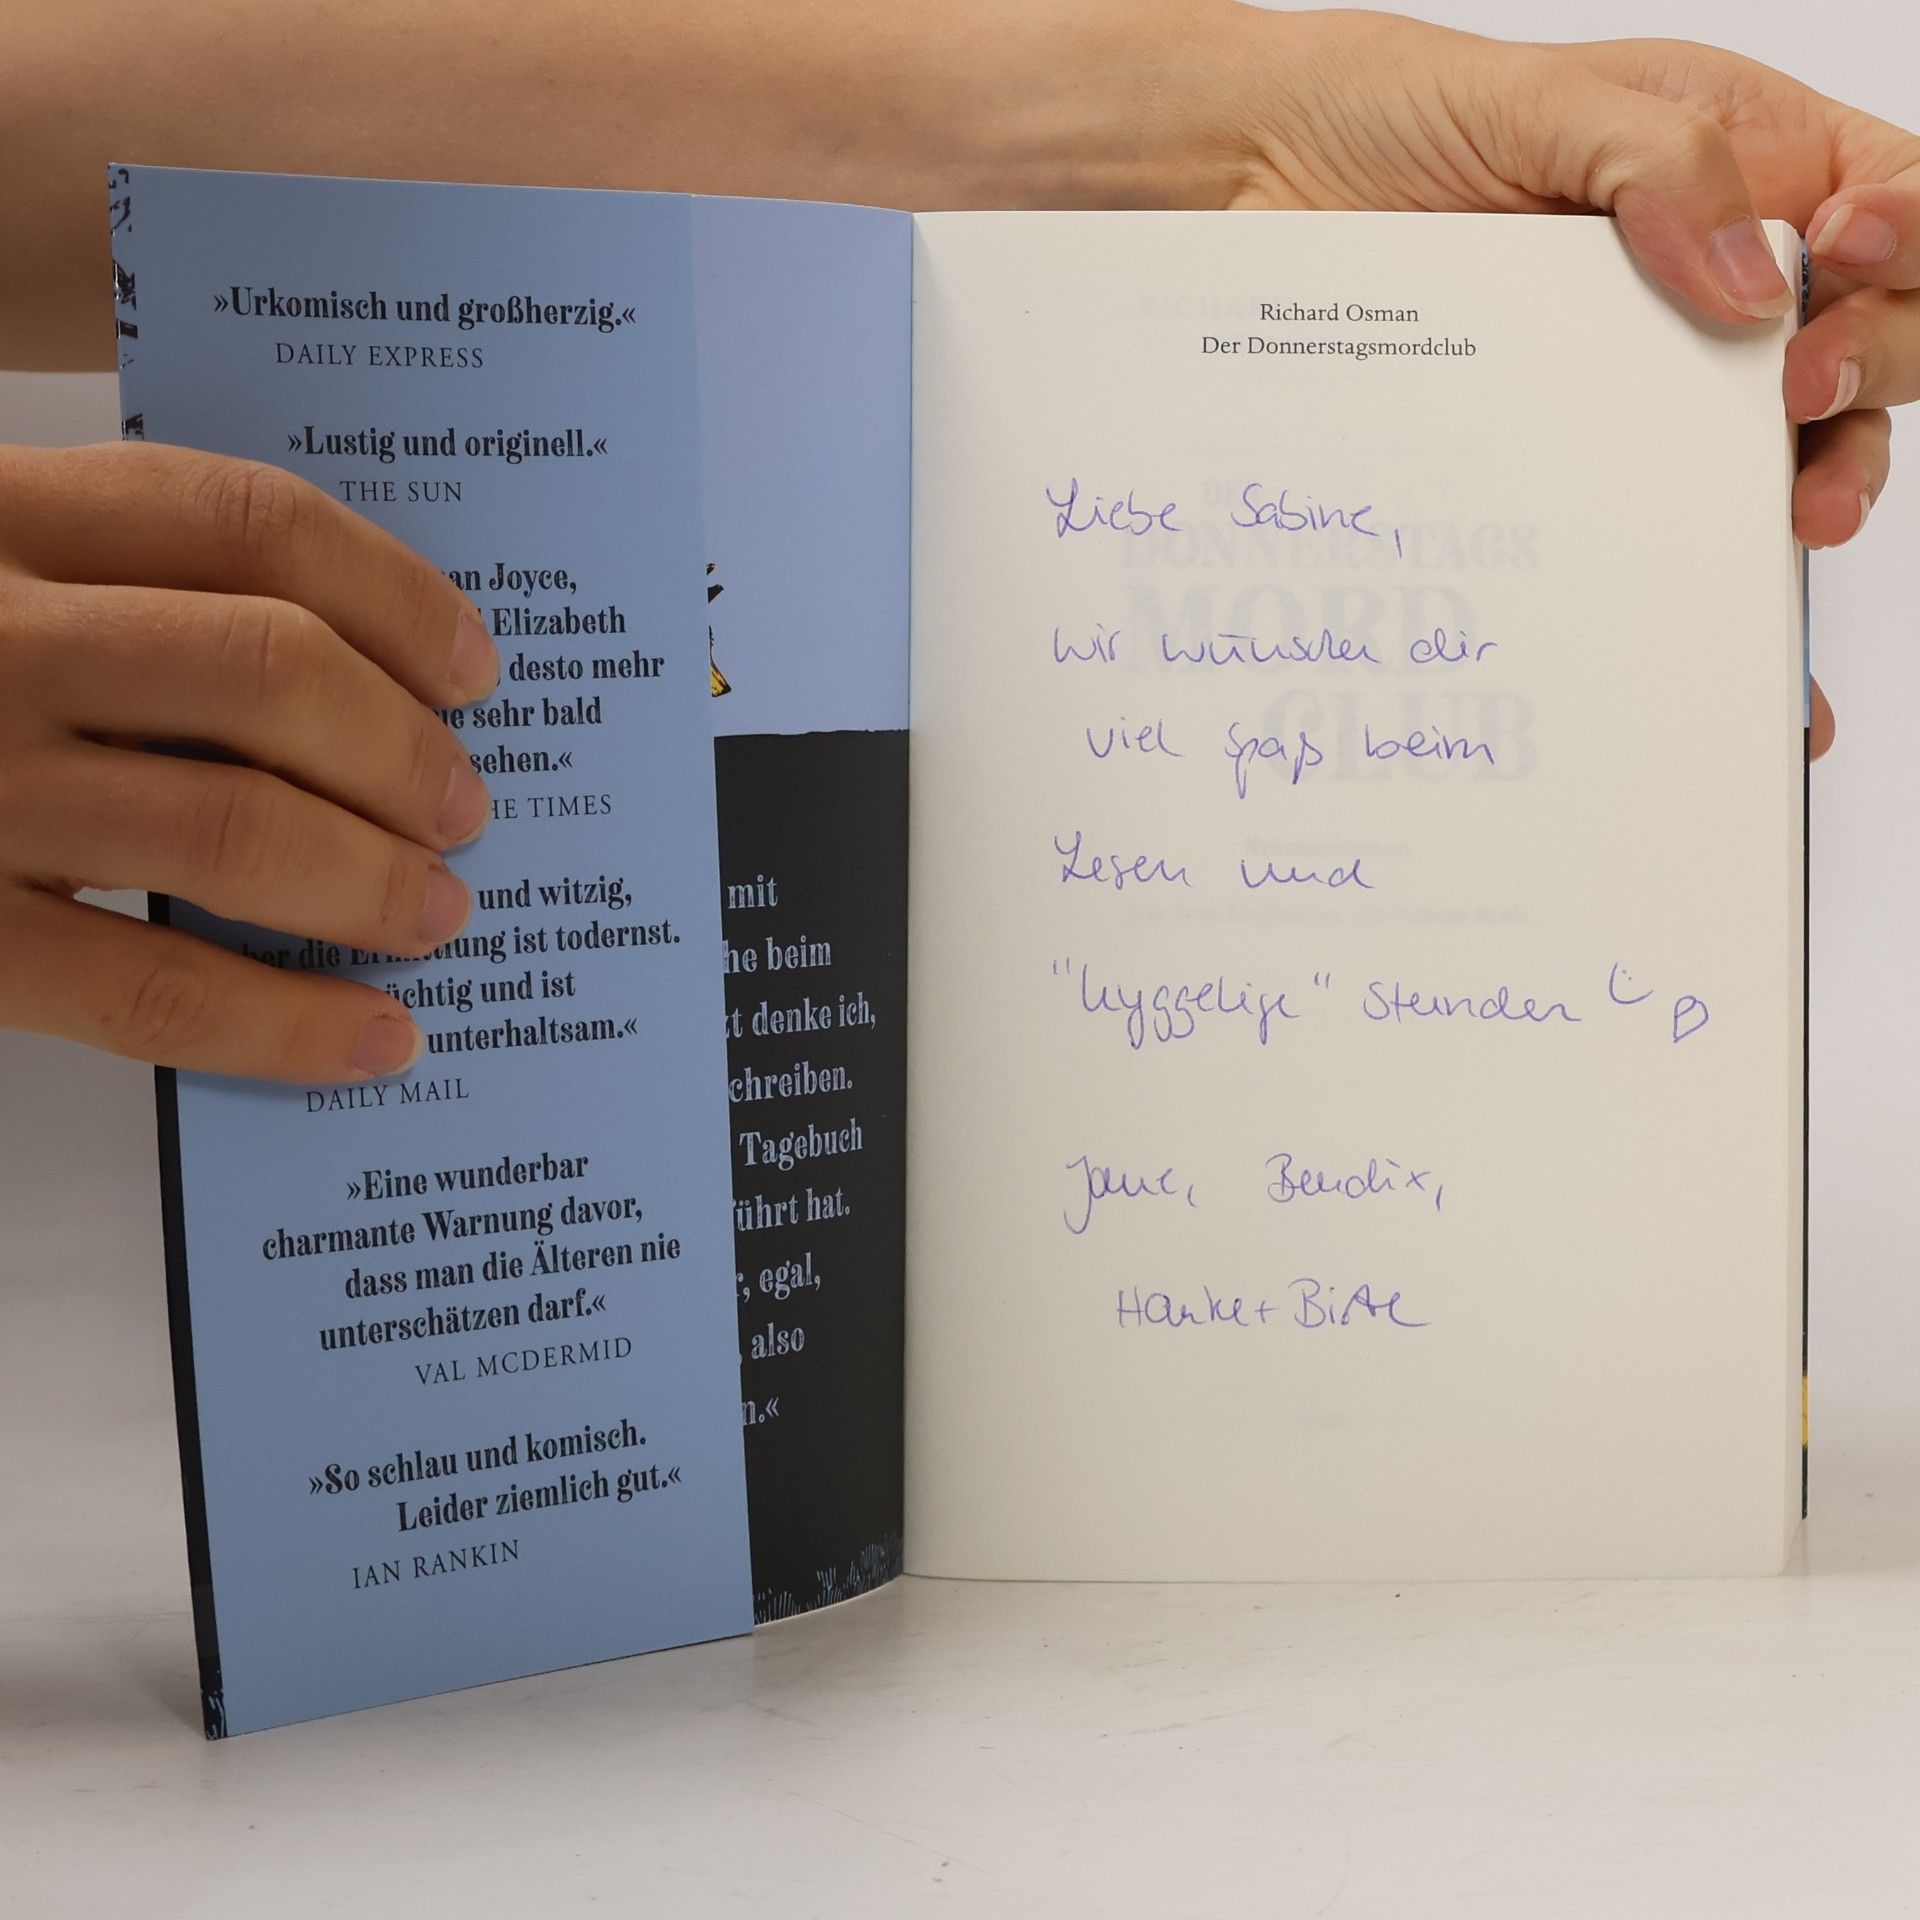 »Urkomisch und großherzig.«
DAILY EXPRESS
»Lustig und originell.«
THE SUN
an Joyce,
Elizabeth
desto mehr
sehr bald
sehen.«
TIMES
und witzig,
die ist todernst.
und ist
unterhaltsam.«
DAILY MAIL
»Eine wunderbar
charmante Warnung davor,
dass man die Älteren nie
unterschätzen darf.«
VAL MCDERMID
»So schlau und komisch.
Leider ziemlich gut.«
IAN RANKIN
mit
he beim
t denke ich,
chreiben.
Tagebuch
ührt hat.
, egal,
also
n.«
Richard Osman
Der Donnerstagsmordclub
Liebe Sabine,
wir wünschen dir
viel Spaß beim
Lesen und
"hyggelige" Stunden
Jane, Bendix,
Hauke + Birte
DONNERSTAGS
MORD
CLUB